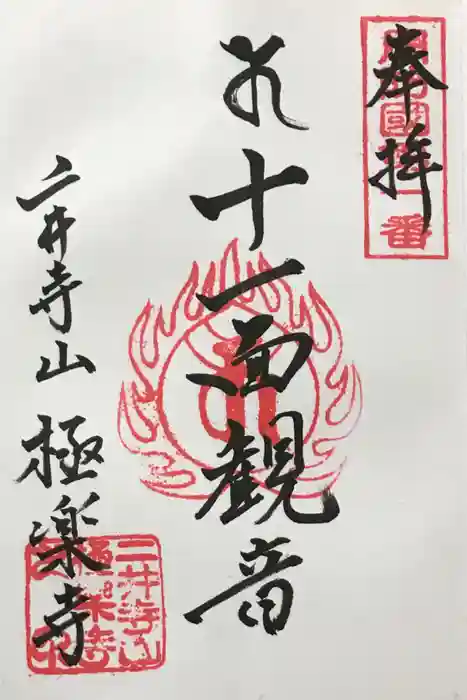 奉拝
國 一番
十一面観音
二井寺山 極楽寺
二井寺山
極楽寺